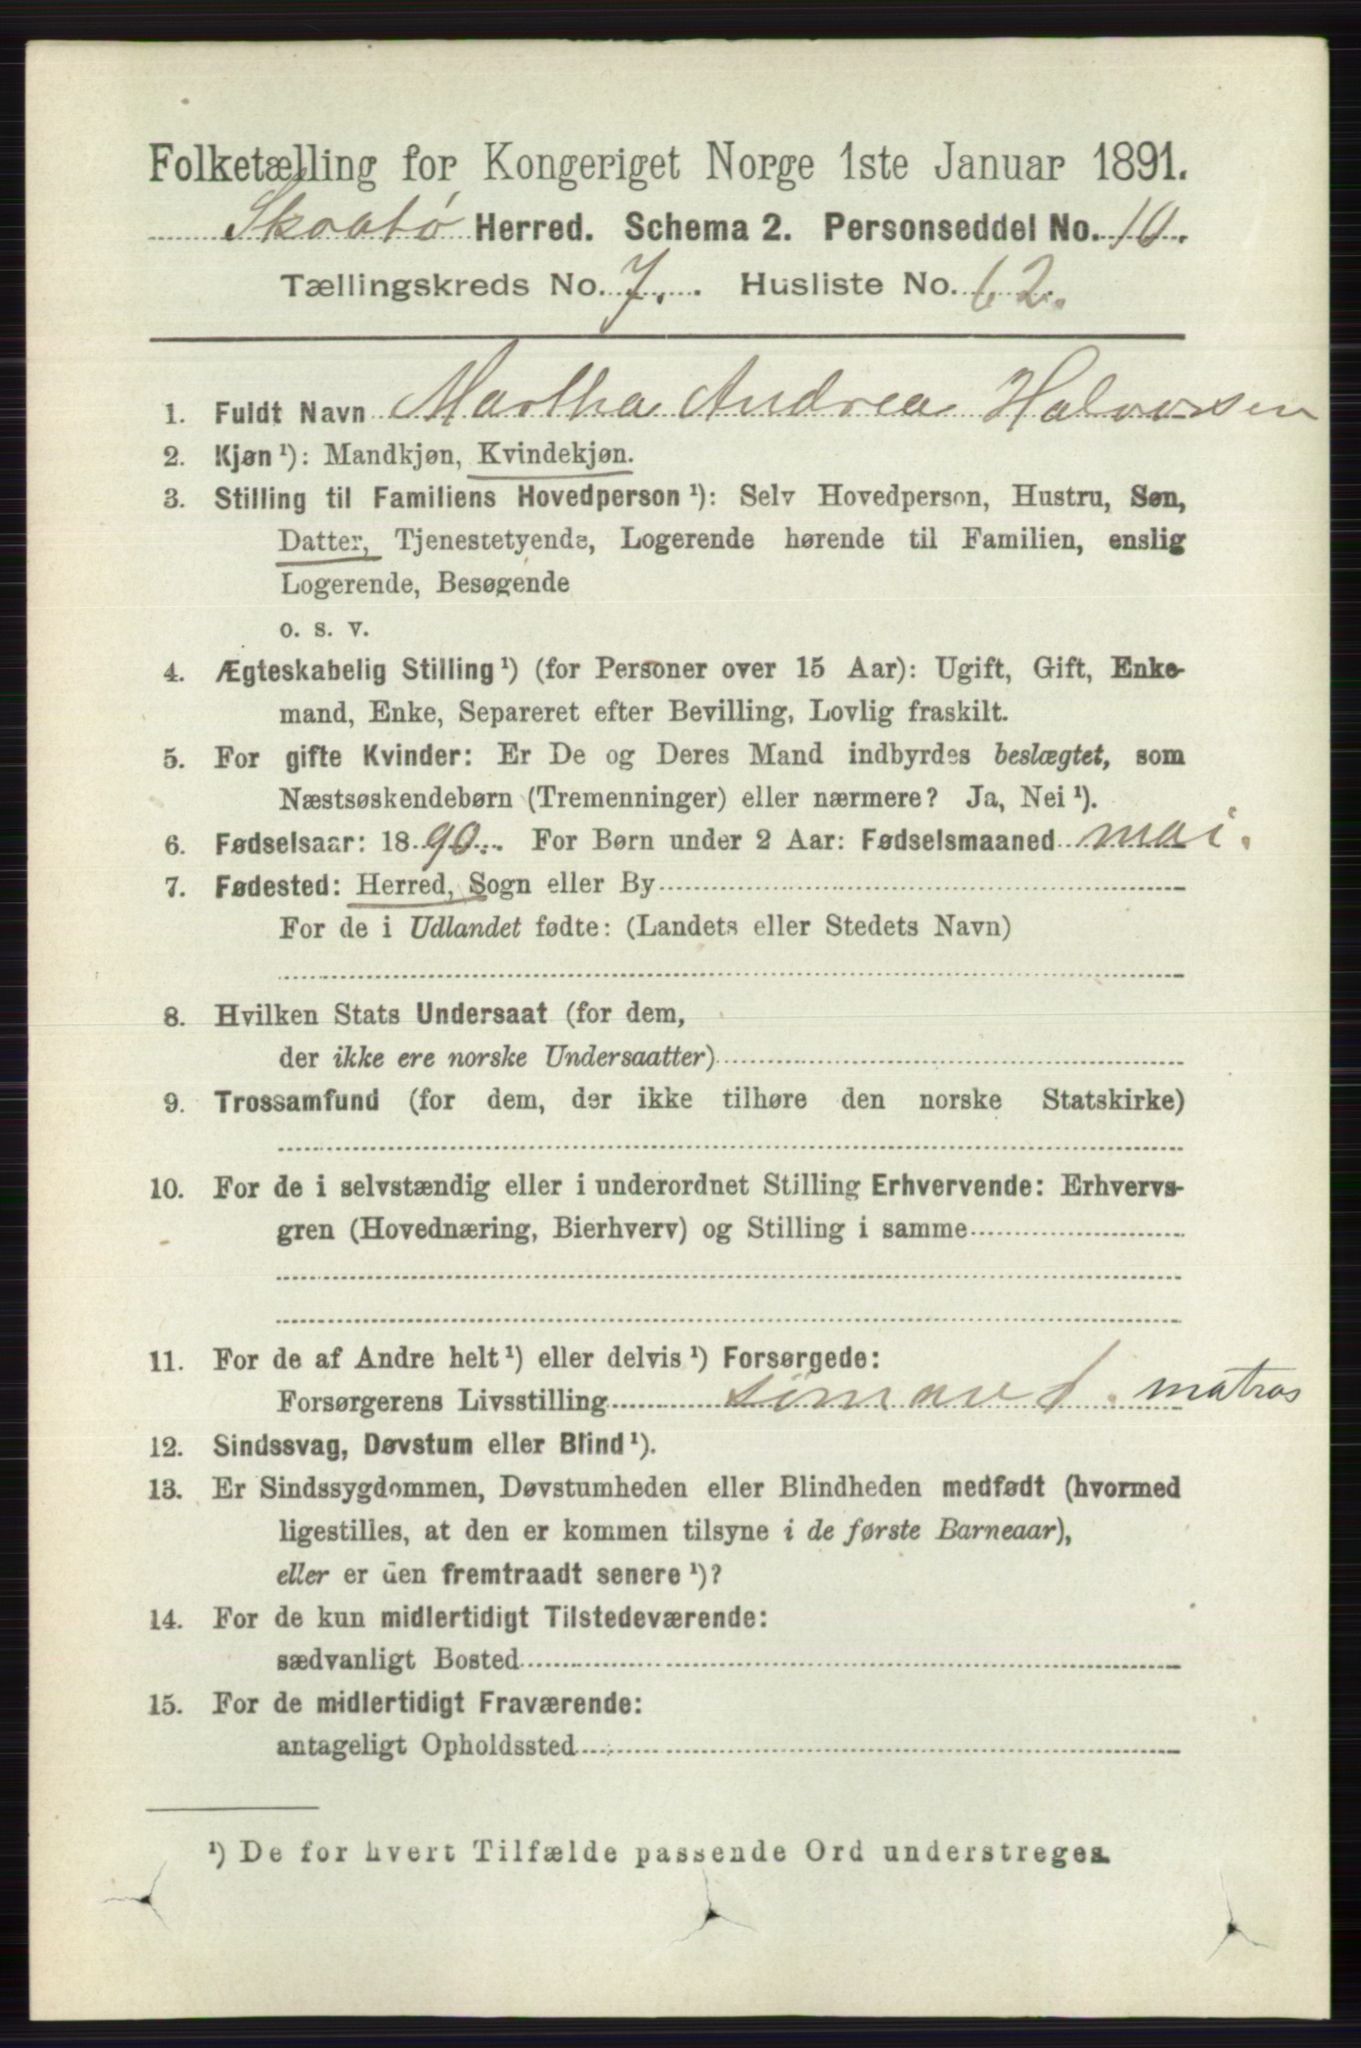 Folketælling for Kongeriget Norge 1ste Januar 1891.
Skaatø Herred. Schema 2. Personseddel No. 10.
Tællingskreds No. 7. Husliste No. 62.
1. Fuldt Navn Martha Andrea Halvorsen
2. Kjøn ¹): Mandkjøn, Kvindekjøn.
3. Stilling til Familiens Hovedperson ¹): Selv Hovedperson, Hustru, Søn,
Datter, Tjenestetyende, Logerende hørende til Familien, enslig
Logerende, Besøgende
o. s. v.
4. Ægteskabelig Stilling ¹) (for Personer over 15 Aar): Ugift, Gift, Enke-
mand, Enke, Separeret efter Bevilling, Lovlig fraskilt.
5. For gifte Kvinder: Er De og Deres Mand indbyrdes beslægtet, som
Næstsøskendebørn (Tremenninger) eller nærmere? Ja, Nei ¹).
6. Fødselsaar: 1890. For Børn under 2 Aar: Fødselsmaaned mai.
7. Fødested: Herred, Sogn eller By
For de i Udlandet fødte: (Landets eller Stedets Navn)
8. Hvilken Stats Undersaat (for dem,
der ikke ere norske Undersaatter)
9. Trossamfund (for dem, der ikke tilhøre den norske Statskirke)
10. For de i selvstændig eller i underordnet Stilling Erhvervende: Erhvervs-
gren (Hovednæring, Bierhverv) og Stilling i samme
11. For de af Andre helt ¹) eller delvis ¹) Forsørgede:
Forsørgerens Livsstilling sømand. matros
12. Sindssvag, Døvstum eller Blind ¹).
13. Er Sindssygdommen, Døvstumheden eller Blindheden medfødt (hvormed
ligestilles, at den er kommen tilsyne i de første Barneaar),
eller er den fremtraadt senere ¹)?
14. For de kun midlertidigt Tilstedeværende:
sædvanligt Bosted
15. For de midlertidigt Fraværende:
antageligt Opholdssted
¹) De for hvert Tilfælde passende Ord understreges.